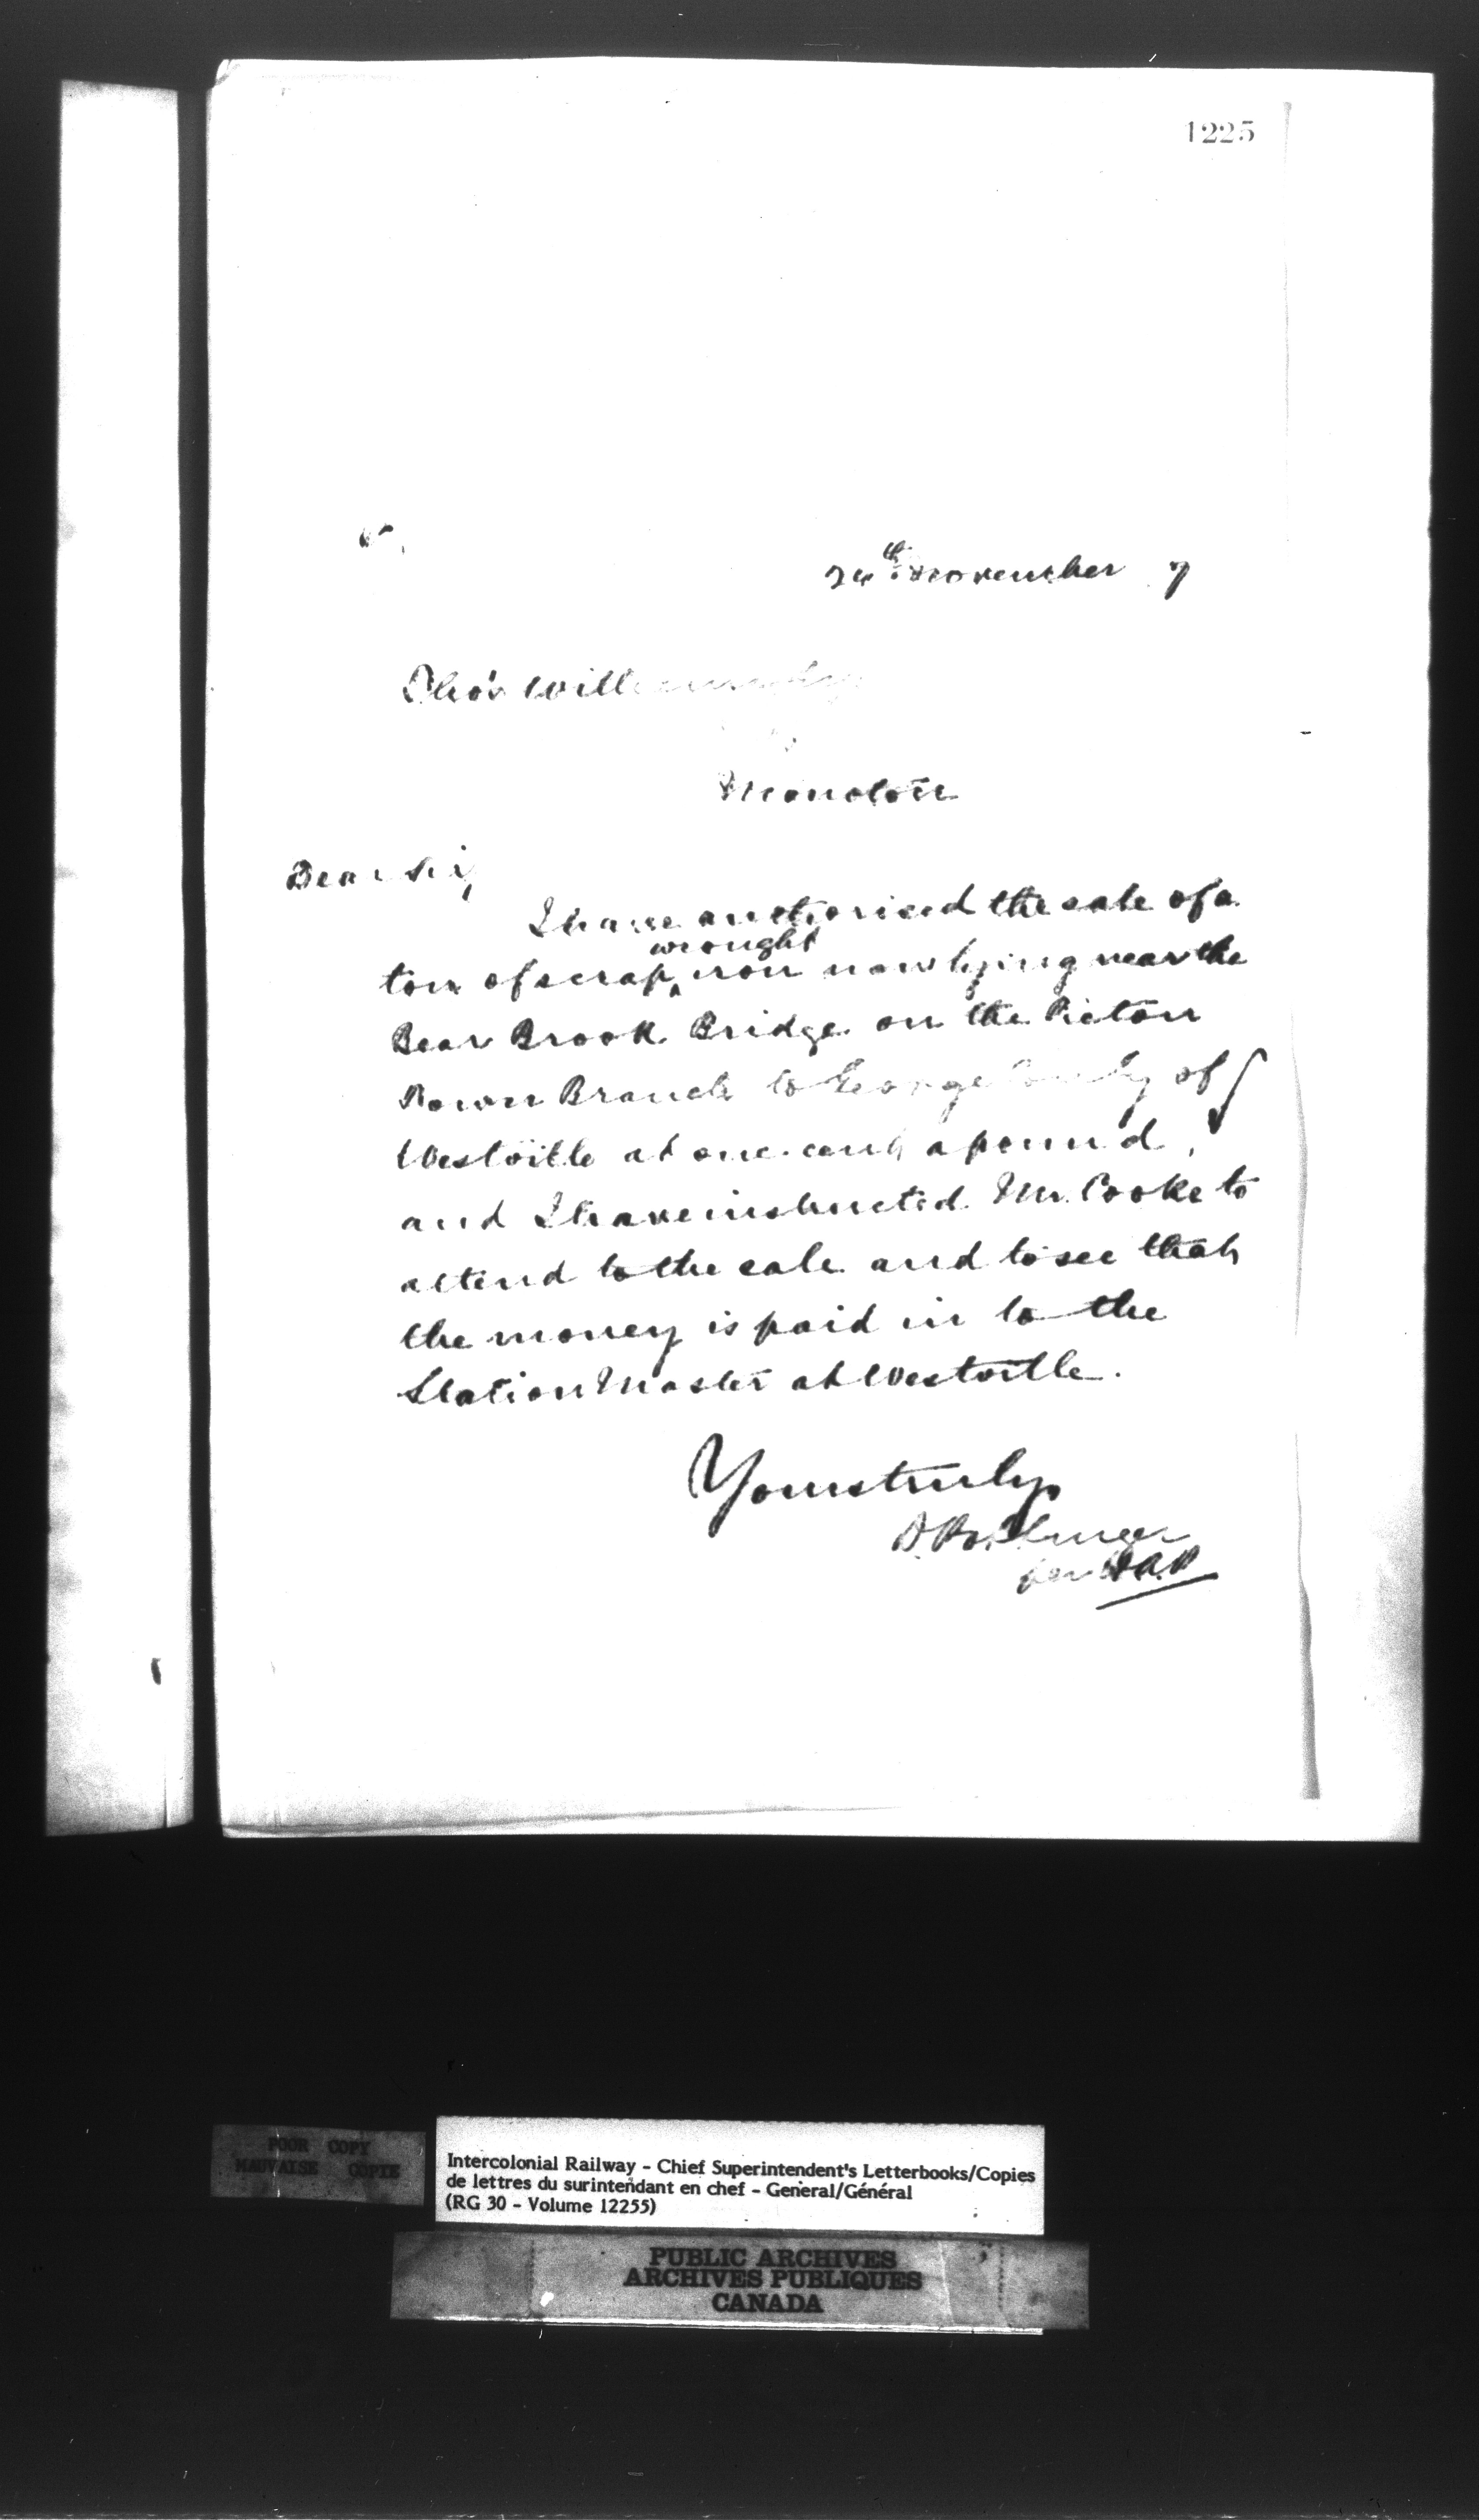 1225
24th November 7
Tho's Will
Moncton
Dear Sir,
I have authorised the sale of a
wrought
ton of scrap ‸ iron now lying near the
Bear Brook Bridge on the Pictou
Town Branch to George of
Westville at one cent a pound,
and I have instructed Mr. Cooke to
attend to the sale and to see that
the money is paid in to the
Station Master at Westville.
Yours truly
D. Pottinger
per
POOR COPY
MAUVAISE COPIE
Intercolonial Railway - Chief Superintendent's Letterbooks/Copies
de lettres du surintendant en chef - General/Général
(RG 30 - Volume 12255)
PUBLIC ARCHIVES
ARCHIVES PUBLIQUES
CANADA